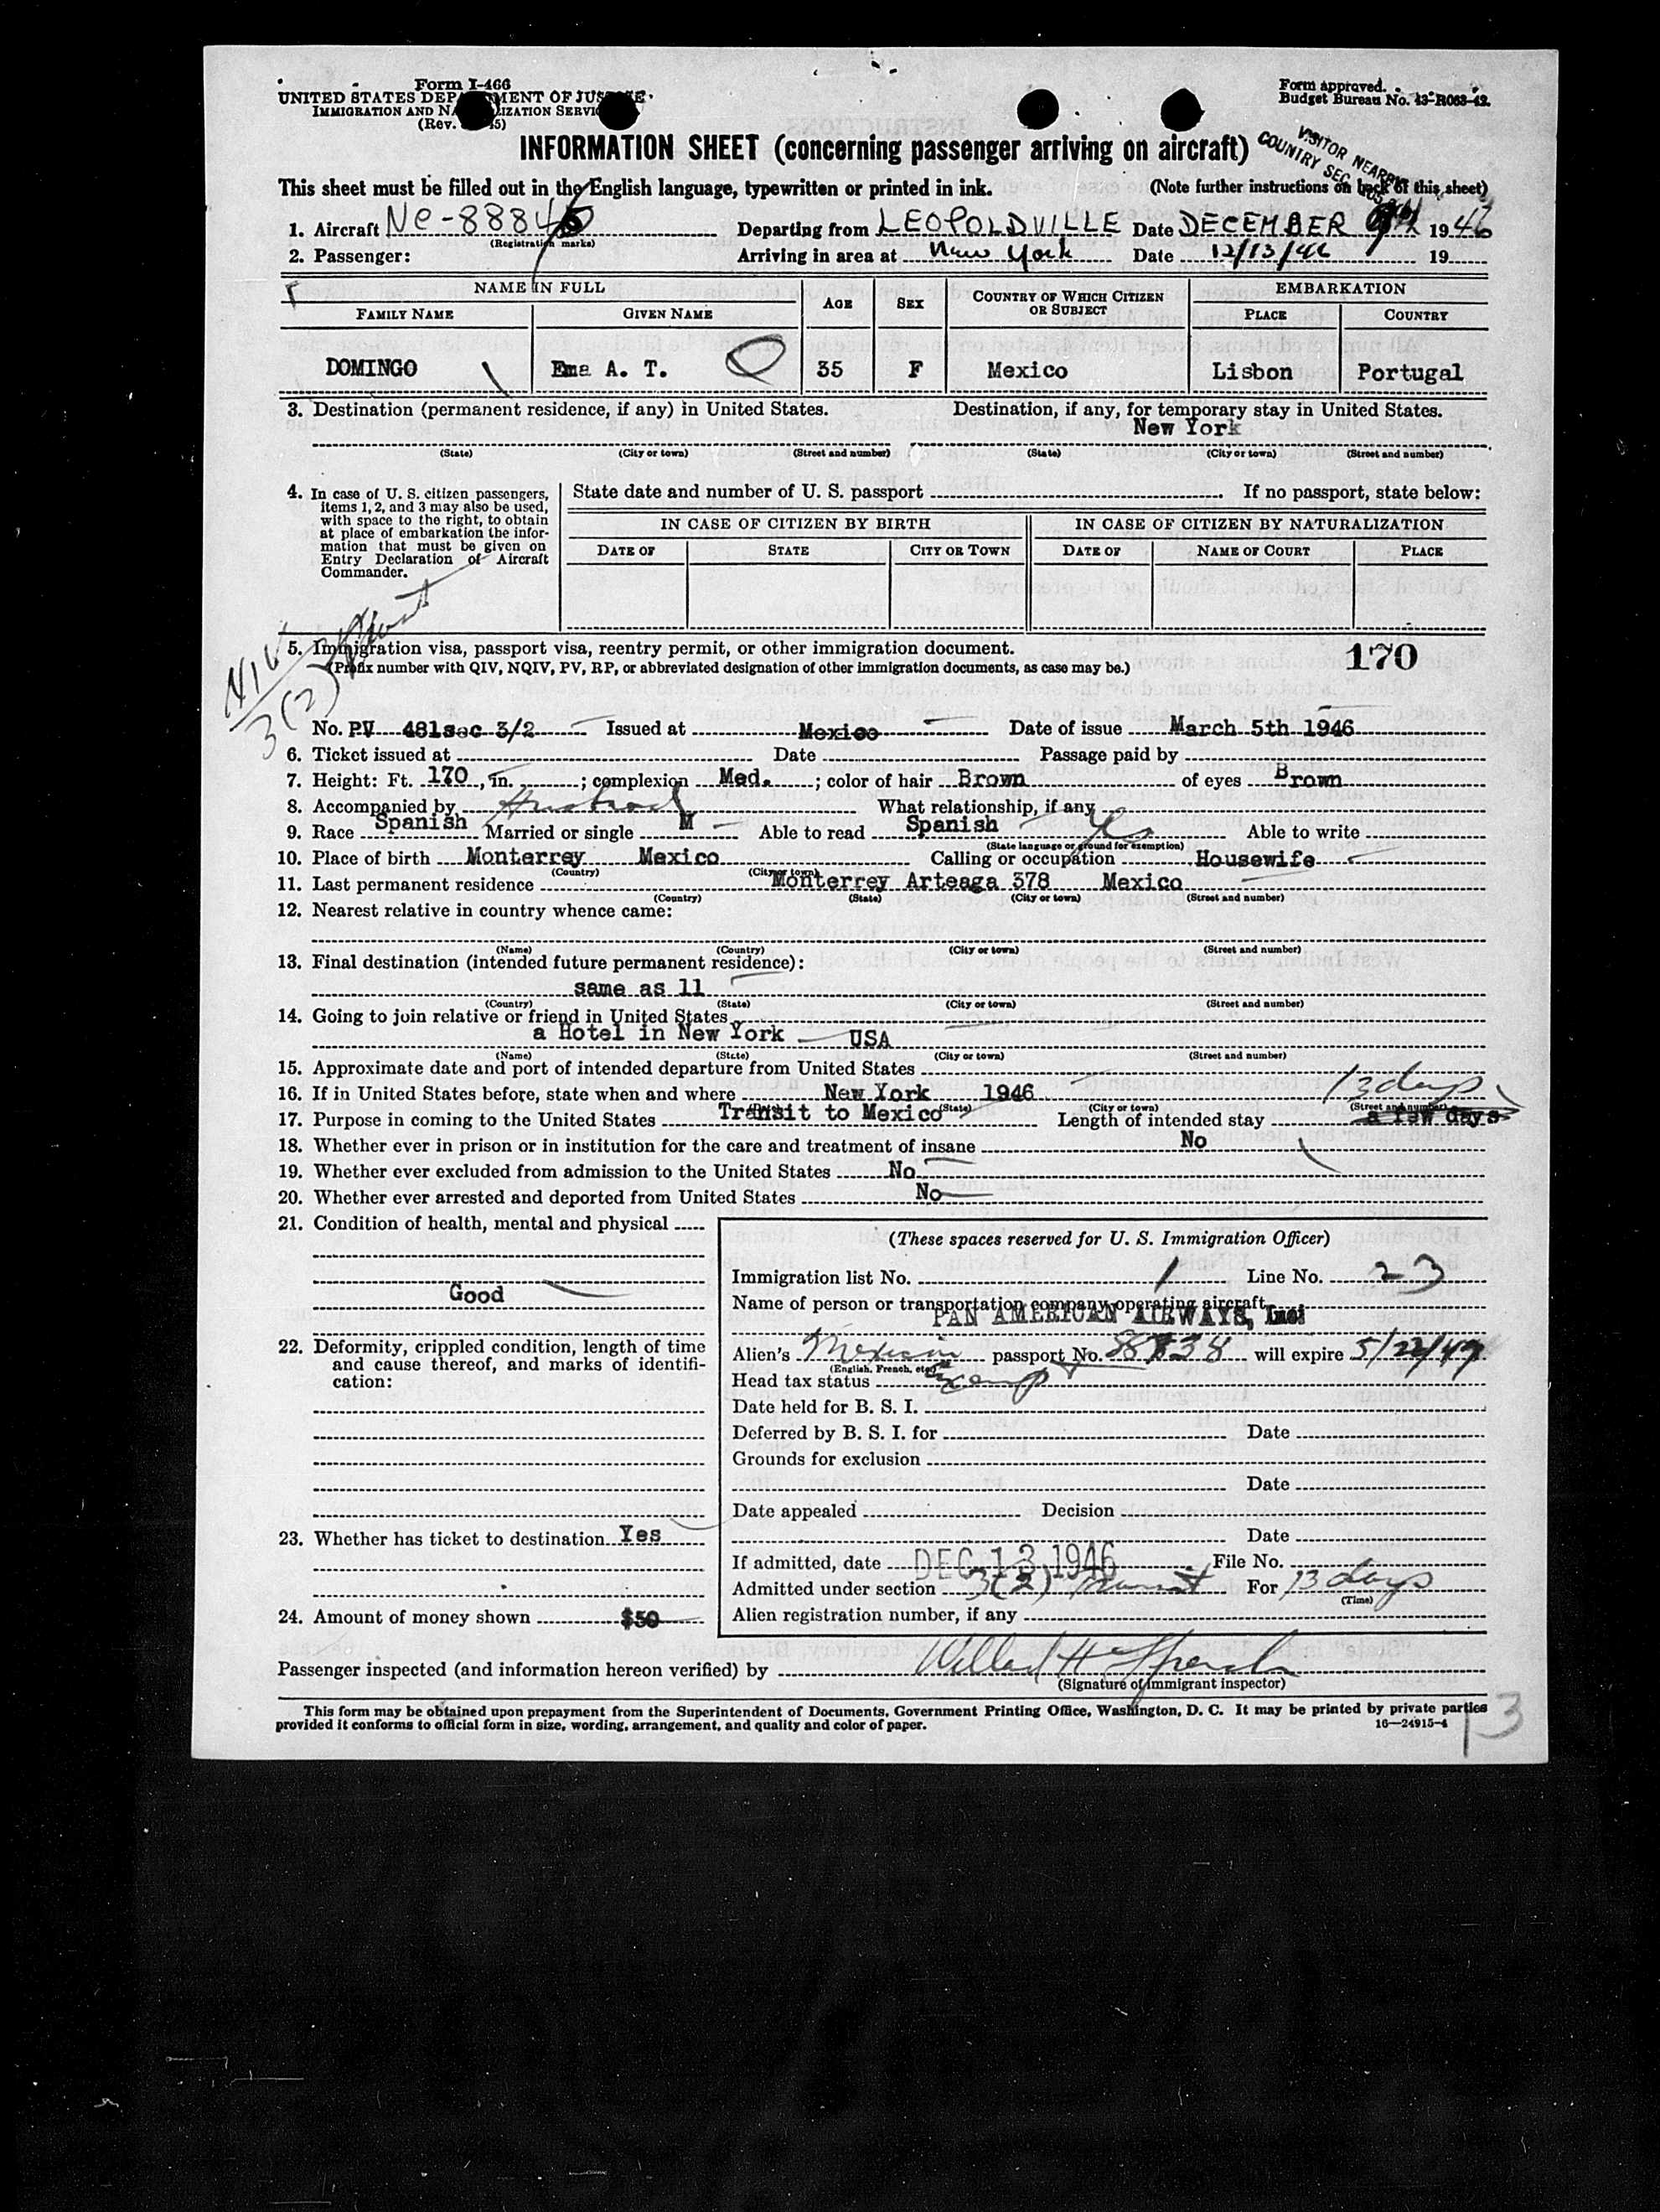 Form I-466
UNITED STATES DEPARTMENT OF JUSTICE
IMMIGRATION AND NATURALIZATION SERVICE
(Rev.
Form approved.
Budget Bureau No. 43-R063-42.
INFORMATION SHEET (concerning passenger arriving on aircraft)
VISITOR NEARBY
COUNTRY SEC.
This sheet must be filled out in the English language, typewritten or printed in ink. (Note further instructions on back of this sheet)
1. Aircraft NC-8884 Departing from LEOPOLDVILLE Date DECEMBER 1946
(Registration marks)
2. Passenger: Arriving in area at New York Date 12/13/46 19
NAME IN FULL AGE SEX COUNTRY OF WHICH CITIZEN OR SUBJECT EMBARKATION
FAMILY NAME GIVEN NAME PLACE COUNTRY
DOMINGO Ema A. T. 35 F Mexico Lisbon Portugal
3. Destination (permanent residence, if any) in United States. Destination, if any, for temporary stay in United States.
New York
(State) (City or town) (Street and number) (State) (City or town) (Street and number)
4. In case of U. S. citizen passengers, items 1, 2, and 3 may also be used, with space to the right, to obtain at place of embarkation the information that must be given on Entry Declaration of Aircraft Commander.
State date and number of U. S. passport If no passport, state below:
IN CASE OF CITIZEN BY BIRTH IN CASE OF CITIZEN BY NATURALIZATION
DATE OF STATE CITY OR TOWN DATE OF NAME OF COURT PLACE
3(2)
5. Immigration visa, passport visa, reentry permit, or other immigration document. 170
(Prefix number with QIV, NQIV, PV, RP, or abbreviated designation of other immigration documents, as case may be.)
No. PV 481sec 3/2 Issued at Mexico Date of issue March 5th 1946
6. Ticket issued at Date Passage paid by
7. Height: Ft. 170, in. ; complexion Med. ; color of hair Brown of eyes Brown
8. Accompanied by Husband What relationship, if any
9. Race Spanish Married or single M Able to read Spanish Yes Able to write
(State language or ground for exemption)
10. Place of birth Monterrey Mexico Calling or occupation Housewife
(Country) (City or town)
11. Last permanent residence Monterrey Arteaga 378 Mexico
(Country) (State) (City or town) (Street and number)
12. Nearest relative in country whence came:
(Name) (Country) (City or town) (Street and number)
13. Final destination (intended future permanent residence):
same as 11
(Country) (State) (City or town) (Street and number)
14. Going to join relative or friend in United States
a Hotel in New York USA
(Name) (State) (City or town) (Street and number)
15. Approximate date and port of intended departure from United States
16. If in United States before, state when and where New York 1946 13 days
(State) (City or town) (Street and number)
17. Purpose in coming to the United States Transit to Mexico Length of intended stay a few days
18. Whether ever in prison or in institution for the care and treatment of insane No
19. Whether ever excluded from admission to the United States No
20. Whether ever arrested and deported from United States No
21. Condition of health, mental and physical
Good
22. Deformity, crippled condition, length of time and cause thereof, and marks of identification:
23. Whether has ticket to destination Yes
24. Amount of money shown $50
(These spaces reserved for U. S. Immigration Officer)
Immigration list No. 1 Line No. 23
Name of person or transportation company operating aircraft
PAN AMERICAN AIRWAYS, Inc.
Alien's Mexican passport No. will expire
(English, French, etc.)
Head tax status Exempt
Date held for B. S. I.
Deferred by B. S. I. for Date
Grounds for exclusion
Date
Date appealed Decision
Date
If admitted, date DEC 13 1946 File No.
Admitted under section 3(2) transit For 13 days
(Time)
Alien registration number, if any
Passenger inspected (and information hereon verified) by
(Signature of immigrant inspector)
This form may be obtained upon prepayment from the Superintendent of Documents, Government Printing Office, Washington, D. C. It may be printed by private parties
provided it conforms to official form in size, wording, arrangement, and quality and color of paper. 16—24915-4
13